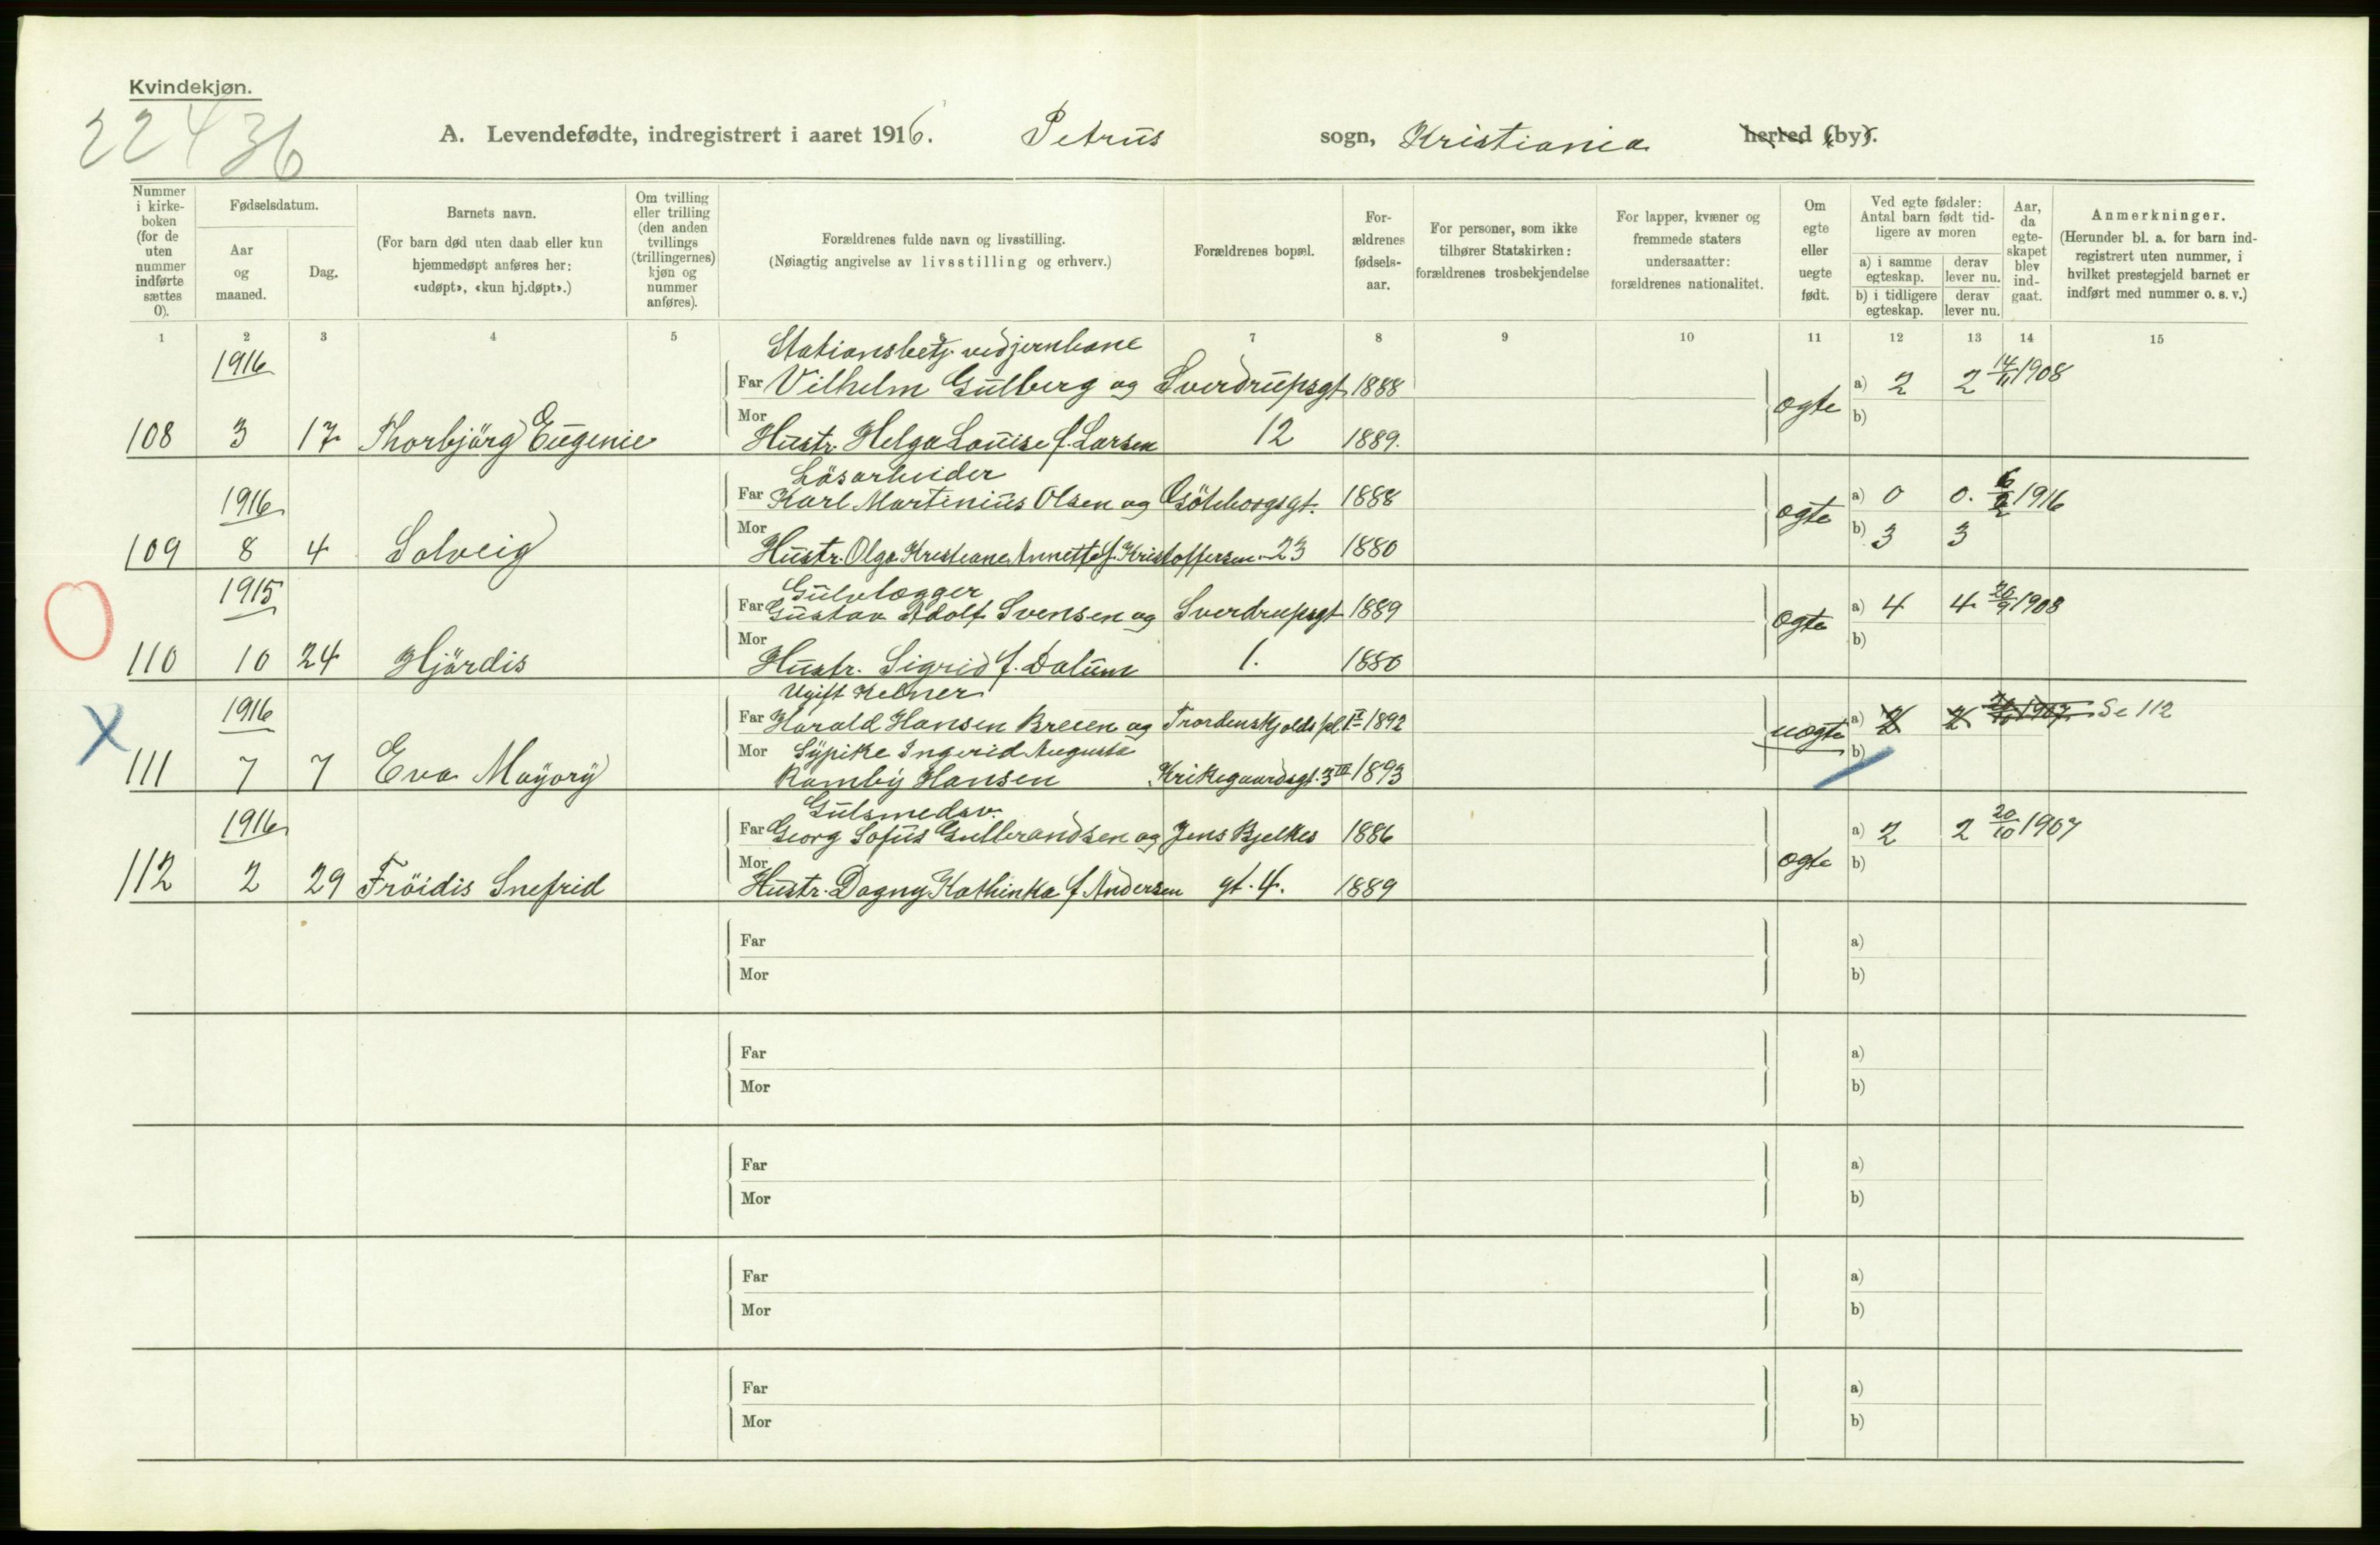 Kvindekjøn.
22436
A. Levendefødte, indregistrert i aaret 1916. Petrus sogn, Kristiania herred (by).
Nummer i kirke-boken (for de uten nummer indførte sættes 0).
Fødselsdatum.
Aar og maaned.
Dag.
Barnets navn.
(For barn død uten daab eller kun hjemmedøpt anføres her: «udøpt», «kun hj.døpt».)
Om tvilling eller trilling (den anden tvillings (trillingernes) kjøn og nummer anføres).
Forældrenes fulde navn og livsstilling.
(Nøiagtig angivelse av livsstilling og erhverv.)
Forældrenes bopæl.
For-ældrenes fødsels-aar.
For personer, som ikke tilhører Statskirken: forældrenes trosbekjendelse
For lapper, kvæner og fremmede staters undersaatter: forældrenes nationalitet.
Om egte eller uegte født.
Ved egte fødsler: Antal barn født tid-ligere av moren
a) i samme egteskap.
derav lever nu.
b) i tidligere egteskap.
derav lever nu.
Aar, da egte-skapet blev ind-gaat.
Anmerkninger.
(Herunder bl. a. for barn ind-registrert uten nummer, i hvilket prestegjeld barnet er indført med nummer o. s. v.)
1 2 3 4 5 7 8 9 10 11 12 13 14 15
Stationsbetj. ved jernbane
1916 Far Vilhelm Gulberg og Sverdrupsgt 1888 a) 2 2 14/11 1908
108 3 17 Thorbjörg Eugenie Mor Hustr. Helga Louise f. Larsen 12 1889. ægte b)
Løsarbeider
1916 Far Karl Martinius Olsen og Göteborgsgt. 1888 a) 0 0. 6/2 1916
109 8 4 Solveig Mor Hustr. Olga Kristiane Annette f. Kristoffersen 23 1880 ægte b) 3 3
Gulvlægger
1915 Far Gustav Adolf Svensen og Sverdrupsgt 1889 a) 4 4 20/9 1908
110 10 24 Hjördis Mor Hustr. Sigrid f. Dalum 1. 1880 ægte b)
Ugift Kelner
1916 Far Harald Hansen Breien og Trordenskjolds pl 1 1892 a) 2 2 20/10 1907 Se 112
Mor Sypike Ingerid Augusta uægte b)
111 7 7 Eva Mayory Ramby Hansen Krikegaardsgt. 3 III 1893
Gulsmedsv.
1916 Far Georg Sofus Gulbrandsen og Jens Bjelkes 1886 a) 2 2 20/10 1907
112 2 29 Fröidis Snefrid Mor Hustr. Dagny Kathinka f. Andersen gt. 4. 1889 ægte b)
Far a)
Mor b)
Far a)
Mor b)
Far a)
Mor b)
Far a)
Mor b)
Far a)
Mor b)